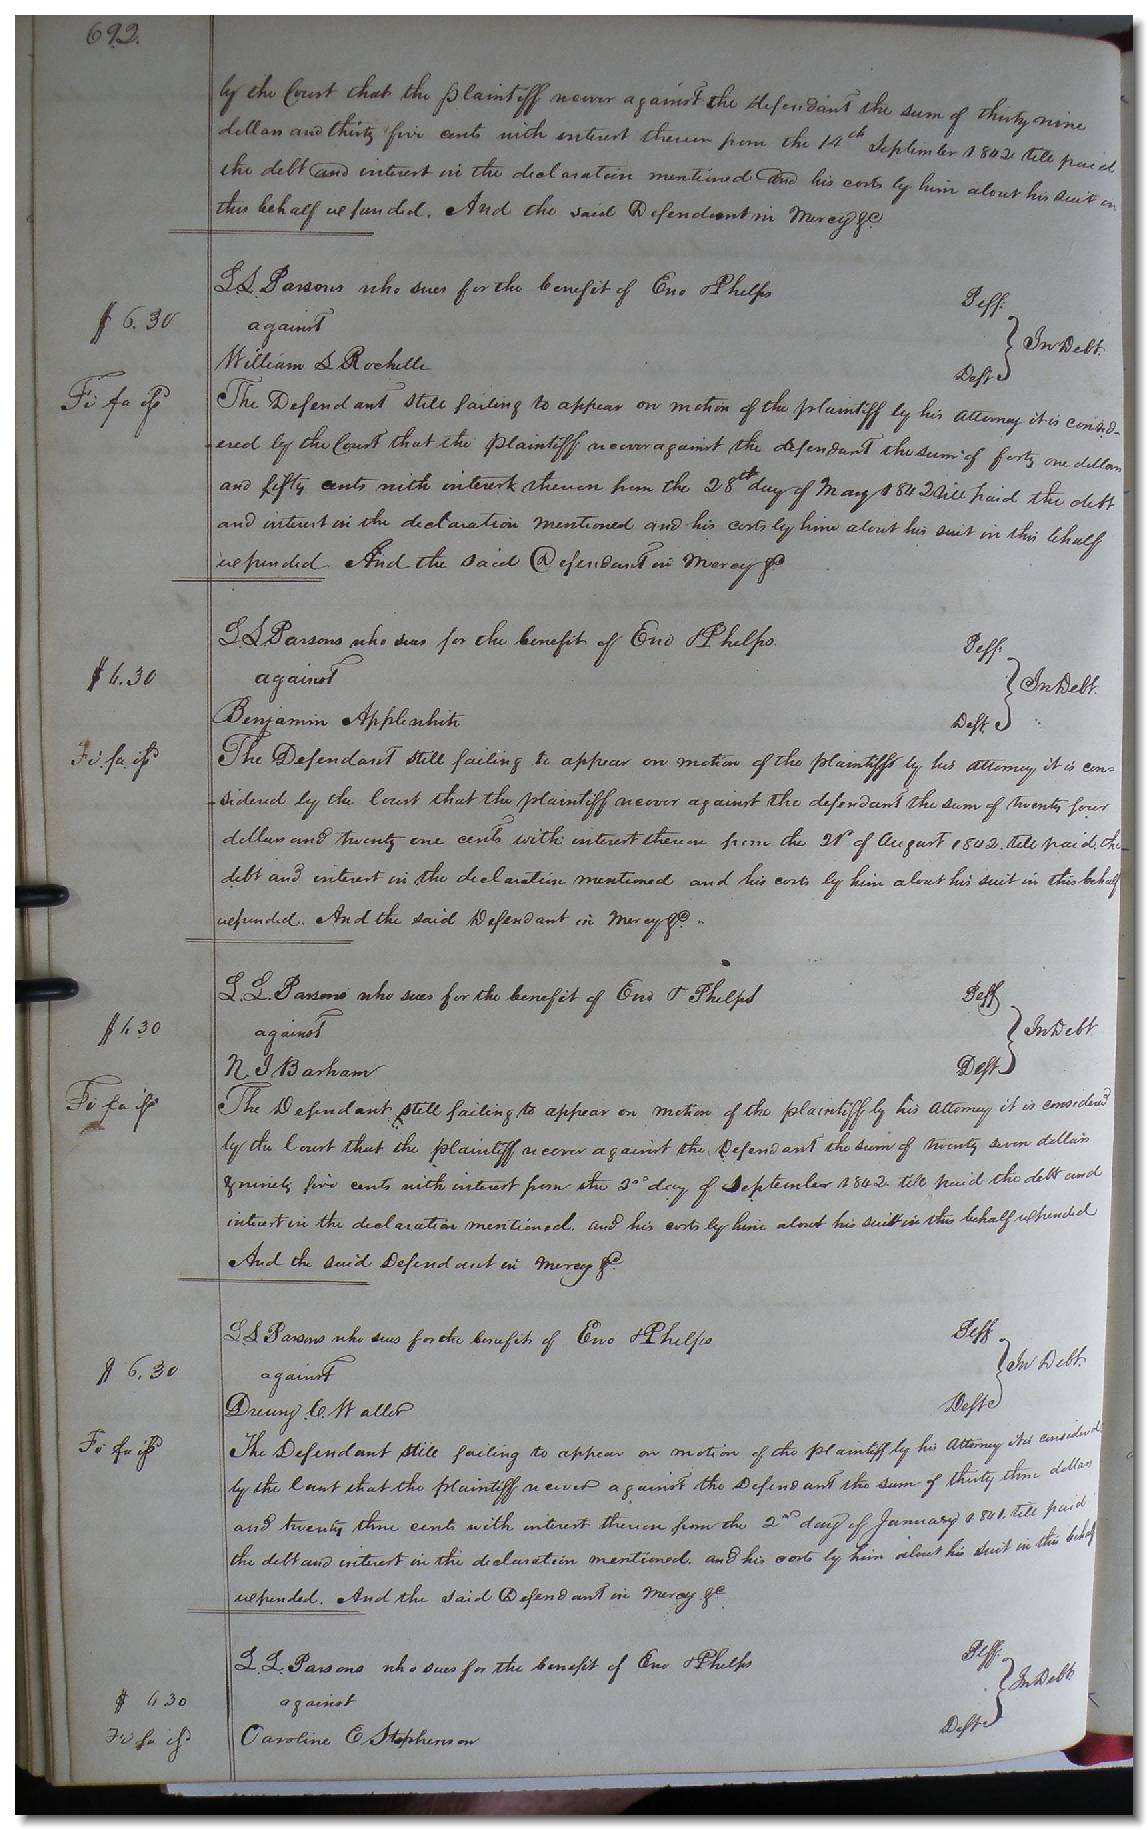 692.
by the Court that the plaintiff recover against the defendant the sum of thirty nine
dollars and thirty five cents with interest thereon from the 14th September 1842 till paid
the debt and interest in the declaration mentioned and his costs by him about his suit in
this behalf expended. And the said Defendant in Mercy &c
L.L. Parsons who sues for the benefit of Eno & Phelps Peff.
$ 6.30 against } In Debt.
William L Rochelle Deft
Fi fa iss The Defendant still failing to appear on motion of the plaintiff by his Attorney it is consid-
-ered by the Court that the plaintiff recover against the defendant the sum of forty one dollars
and fifty cents with interest thereon from the 28th day of May 1842 till paid the debt
and interest in the declaration mentioned and his costs by him about his suit in this behalf
expended. And the said Defendant in Mercy &c
L L Parsons who sues for the benefit of Eno & Phelps. Peff.
$ 6.30 against } In Debt.
Benjamin Applewhite Deft
Fi. fa. iss The Defendant still failing to appear on motion of the plaintiffs by his attorney it is con-
-sidered by the Court that the plaintiff recover against the defendant the sum of twenty four
dollars and twenty one cents with interest thereon from the 21st of August 1842. till paid. the
debt and interest in the declaration mentioned and his costs by him about his suit in this behalf
expended. And the said Defendant in Mercy &c
L. L. Parsons who sues for the benefit of Eno & Phelps Peff
$ 6 30 against } In Debt
N. J Barham Deft
Fi fa iss The Defendant still failing to appear on motion of the plaintiff by his Attorney it is considered
by the Court that the plaintiff recover against the Defendant the sum of twenty seven dollars
& ninety five cents with interest from the day of September 1842 till paid the debt and
interest in the declaration mentioned. and his costs by him about his suit in this behalf expended
And the said Defendant in mercy &c
L L Parsons who sues for the benefit of Eno & Phelps Peff
$ 6.30 against } In Debt.
C. Waller Deft
Fi fa iss The Defendant still failing to appear on motion of the plaintiff by his Attorney it is considered
by the Court that the plaintiff recover against the Defendant the sum of thirty three dollars
and twenty three cents with interest thereon from the 2nd day of January 1841. till paid
the debt and interest in the declaration mentioned. and his costs by him about his suit in this behalf
expended. And the said Defendant in Mercy &c
L. L. Parsons who sues for the benefit of Eno & Phelps Peff.
$ 6 30 against } In Debt
Fi fa iss Caroline E Stephenson Deft